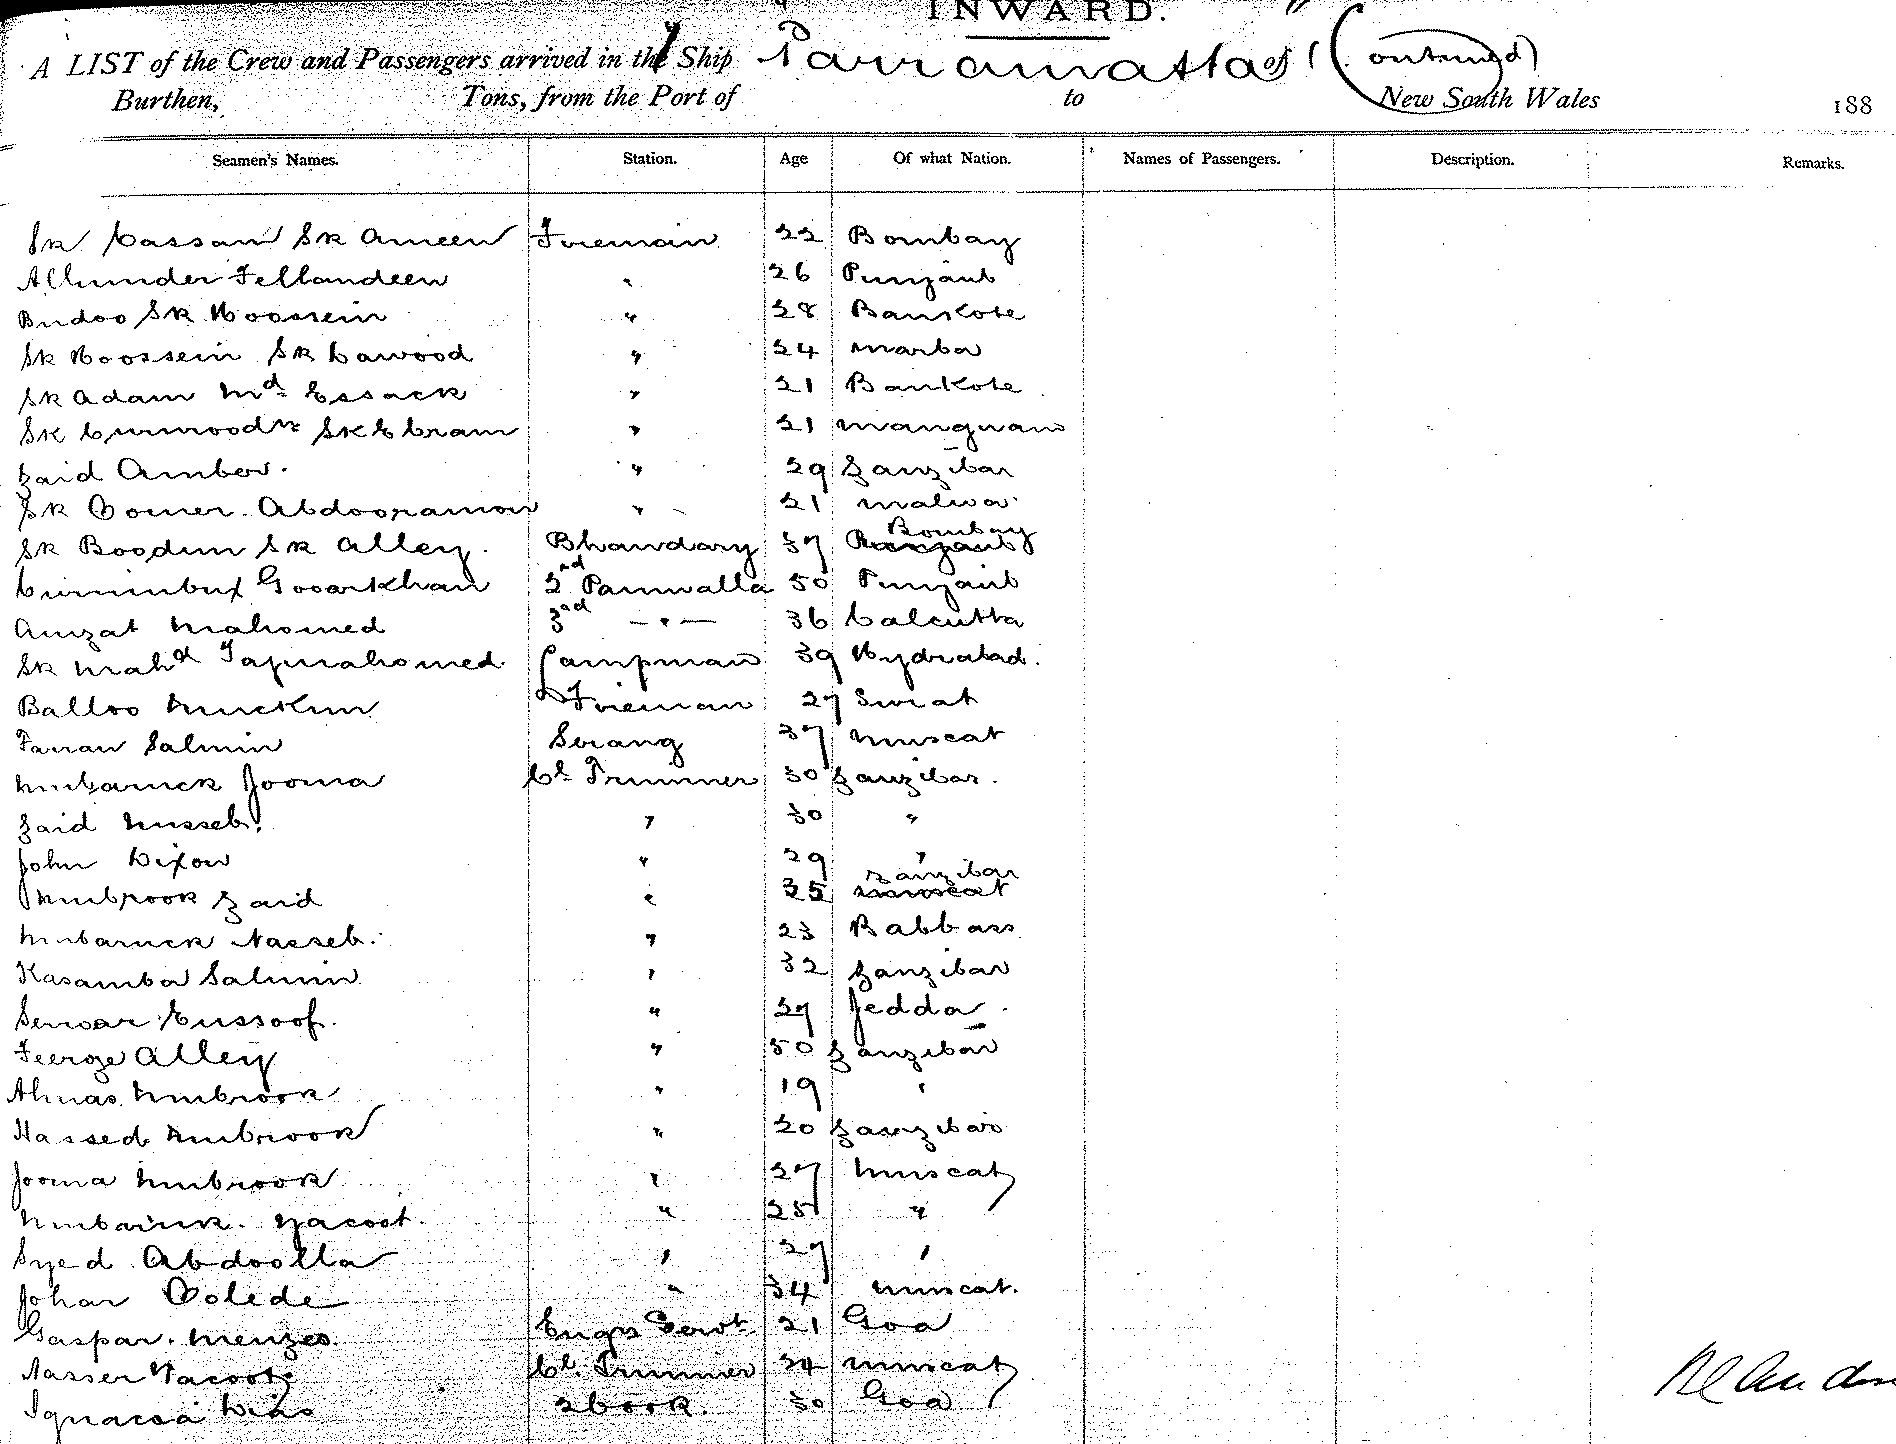 INWARD.
A LIST of the Crew and Passengers arrived in the Ship Parramatta of (Continued)
Burthen, Tons, from the Port of to New South Wales 188
Seamen's Names. Station. Age Of what Nation. Names of Passengers. Description. Remarks.
Sk Cassam Sk Ameen Fireman 22 Bombay
Allunder Fellandeen " 26 Punjaub
Budoo Sk Hoossein " 28 Bankote
Sk Hoossein Sk Dawood " 24 Marba
Sk Adam Md Essack " 21 Bankote
Sk Sk Ebram " 21
Zaid Amber. " 29 Zanzibar
Sk Oomer Abdooraman " 21 Malwa
Sk Boodun Sk Alley. Bhandary 37 Punjaub Bombay
Curimbux Gooarkhan 2nd Paniwalla 50 Punjaub
Amzat Mahomed 3rd — " — 36 Calcutta
Sk Mahd Tajmahomed Lampman 39 Hydrabad.
Balloo Muckun Fireman 27 Surat
Farran Salmin Serang 37 Muscat
Mubaruck Jooma Cl Trimmer 30 Zanzibar.
Zaid Musseb. " 30 "
John Dixon " 29 "
Mubrook Zaid " 25 Muscat Zanzibar
Mubaruck Nasseb. " 23 Babbass
Kasamba Salmin " 32 Zanzibar
Serwar Eussoof. " 27 Jedda
Feeroze Alley " 50 Zanzibar
Almas Mubrook " 19 "
Nasseb Mubrook " 20 Zanzibar
Jooma Mubrook " 27 Muscat
Mubaruck. Yacoot. " 25 "
Syed Abdoolla " 27 "
Johar Oolede " 34 Muscat.
Gaspar. Menzes Engrs Servt 21 Goa
Nasser Yacoote Cl. Trimmer 34 Muscat
Ignacia Dias 2 Cook. 30 Goa